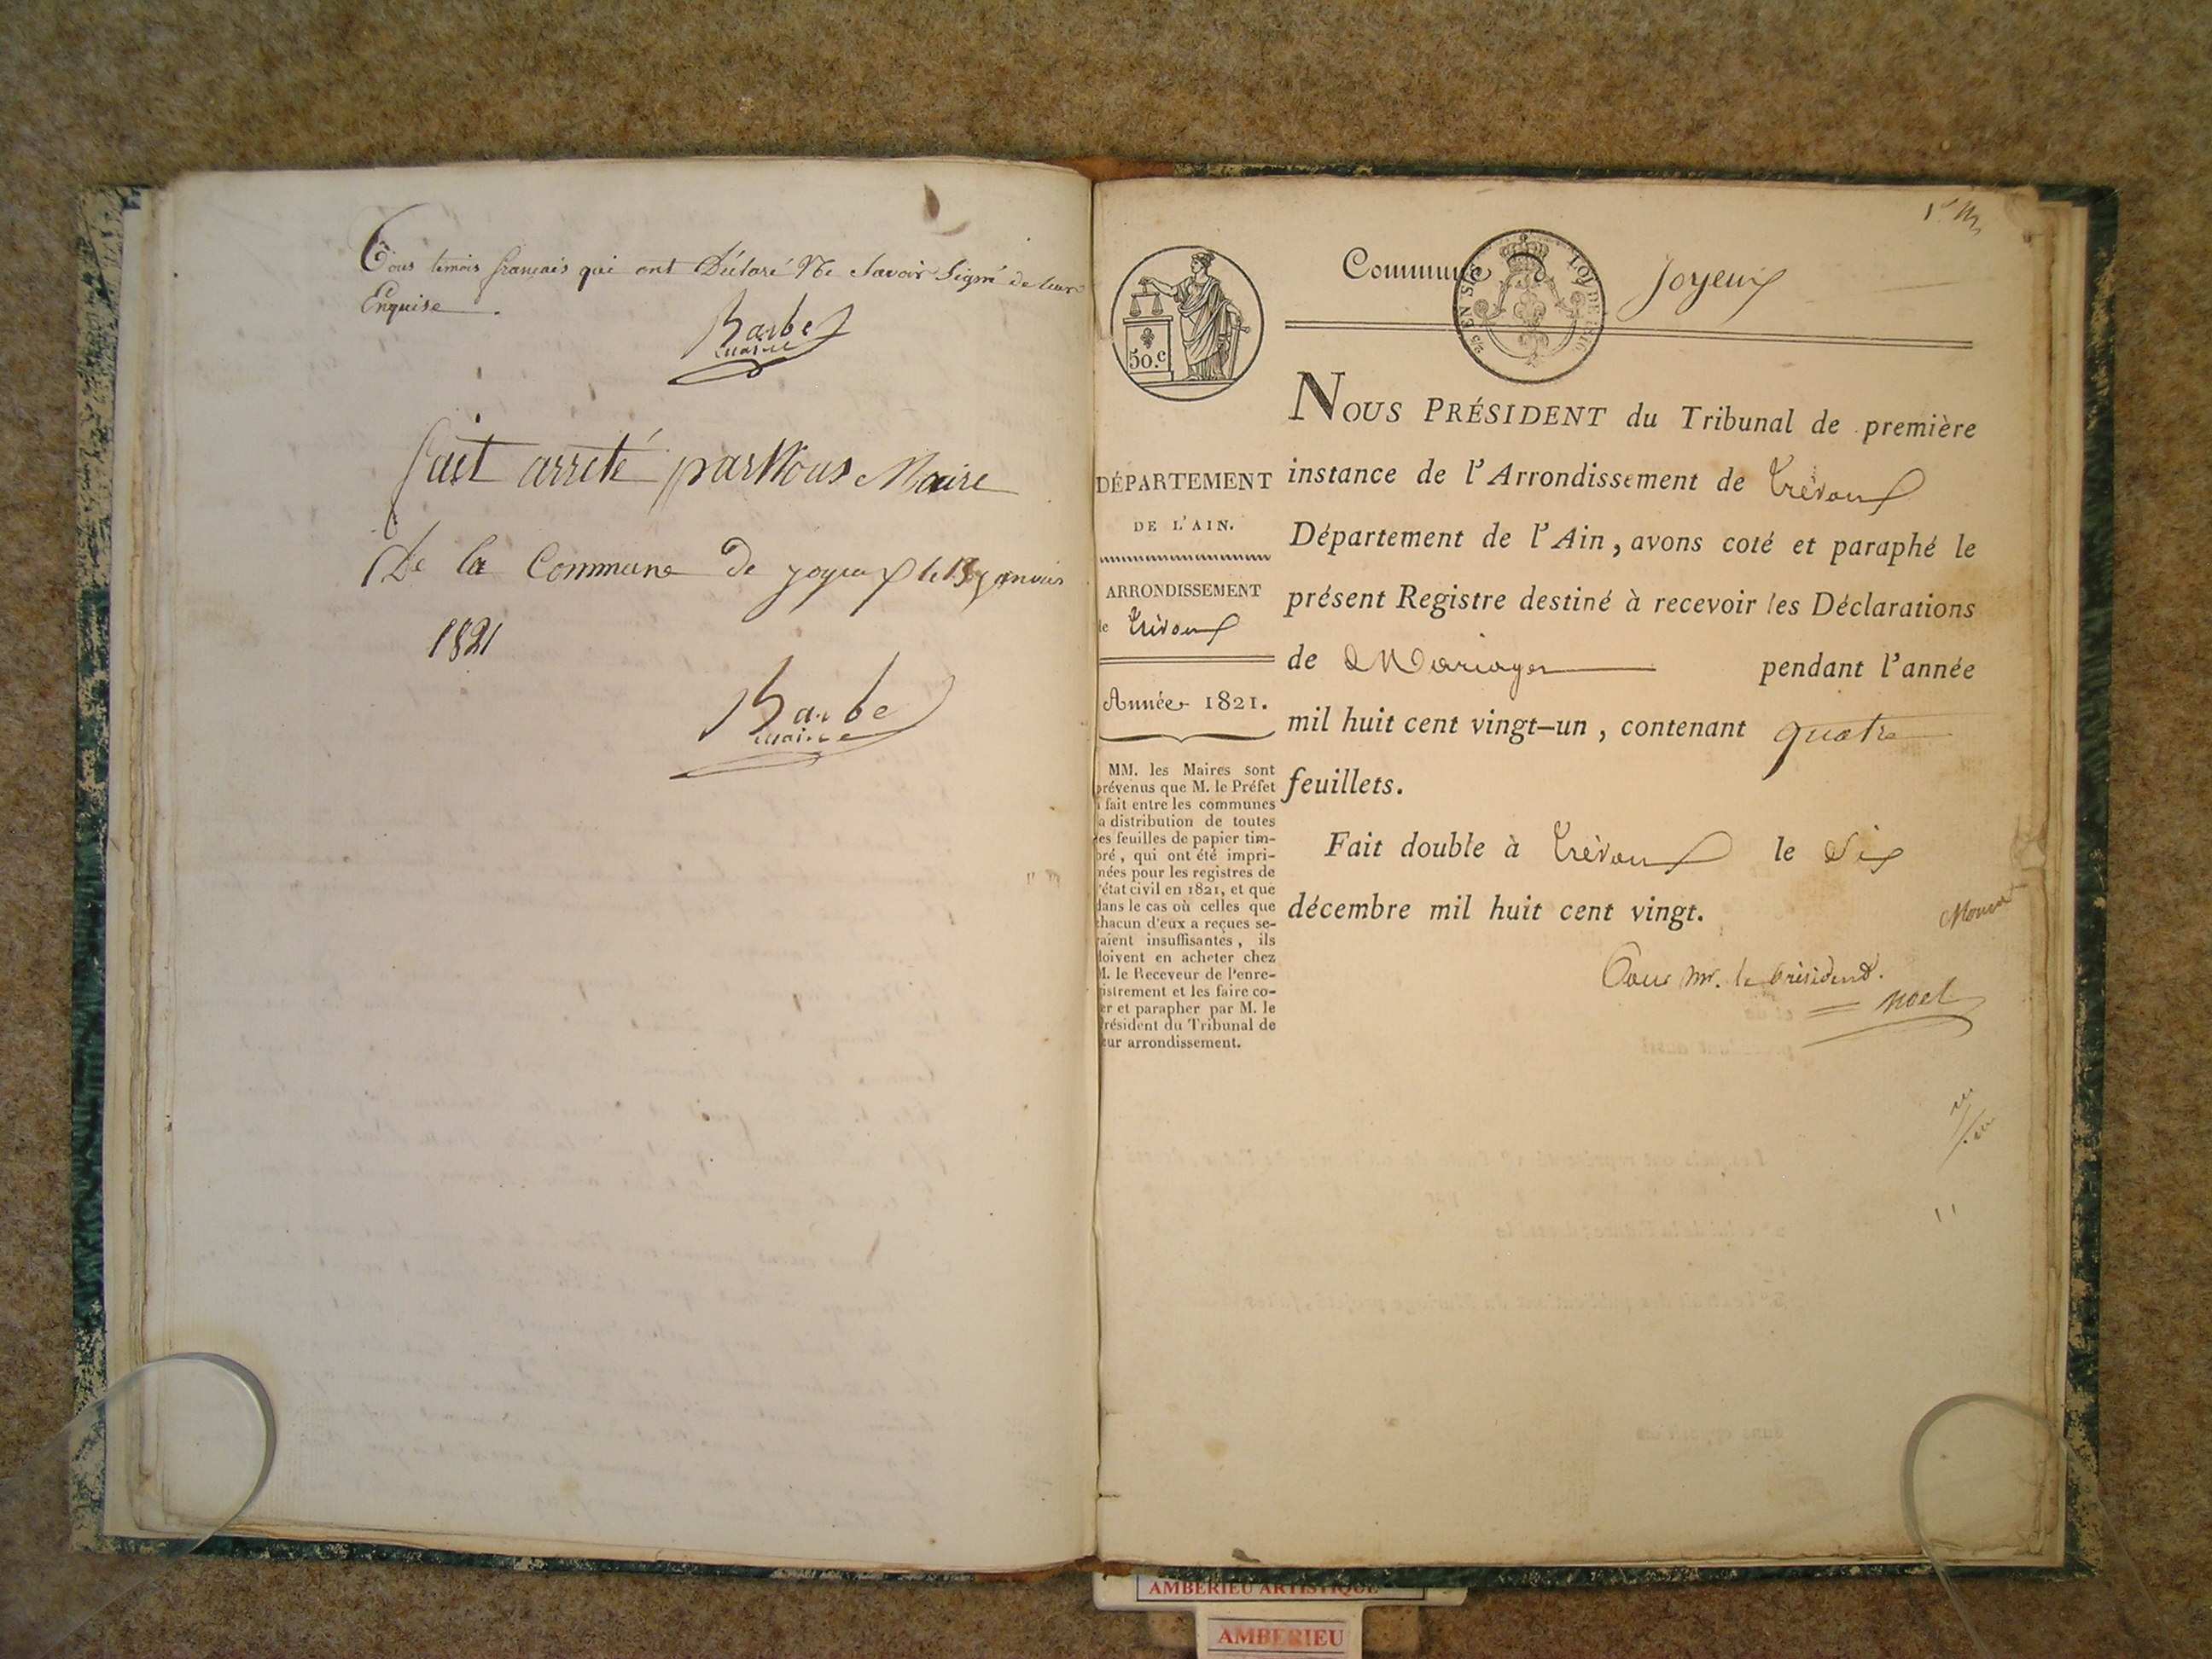 Tous temois français qui ont Déclaré Ne Savoir Signé de leur
Enquise.
Barbe
maire
fait arreté par Nous Maire
De la Commune de joyeux le janvier
1821
Barbe
maire
Commune Joyeux
50.c
DÉPARTEMENT
DE L'AIN.
ARRONDISSEMENT
de Trévoux
Année 1821.
MM. les Maires sont
prévenus que M. le Préfet
a fait entre les communes
la distribution de toutes
les feuilles de papier tim-
bré, qui ont été impri-
mées pour les registres de
l'état civil en 1821, et que
dans le cas où celles que
chacun d'eux a reçues se-
raient insuffisantes, ils
doivent en acheter chez
M. le Receveur de l'enre-
gistrement et les faire co-
ter et parapher par M. le
Président du Tribunal de
leur arrondissement.
NOUS PRÉSIDENT du Tribunal de première
instance de l'Arrondissement de Trévoux
Département de l'Ain, avons coté et paraphé le
présent Registre destiné à recevoir les Déclarations
de Mariages pendant l'année
mil huit cent vingt-un, contenant quatre
feuillets.
Fait double à Trévoux le Six
décembre mil huit cent vingt.
Pour mr. le président.
Noel
AMBERIEU ARTISTIQUE
AMBERIEU